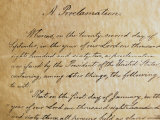 A Proclamation.
Whereas, on the twenty-second day of
September, in the year of our Lord one thousand
eight hundred and sixty-two, a proclamation
was issued by the President of the United States,
containing, among other things, the following,
to wit:
"That on the first day of January, in
the year of our Lord one thousand eight hundred
and sixty-three, all persons held as slaves